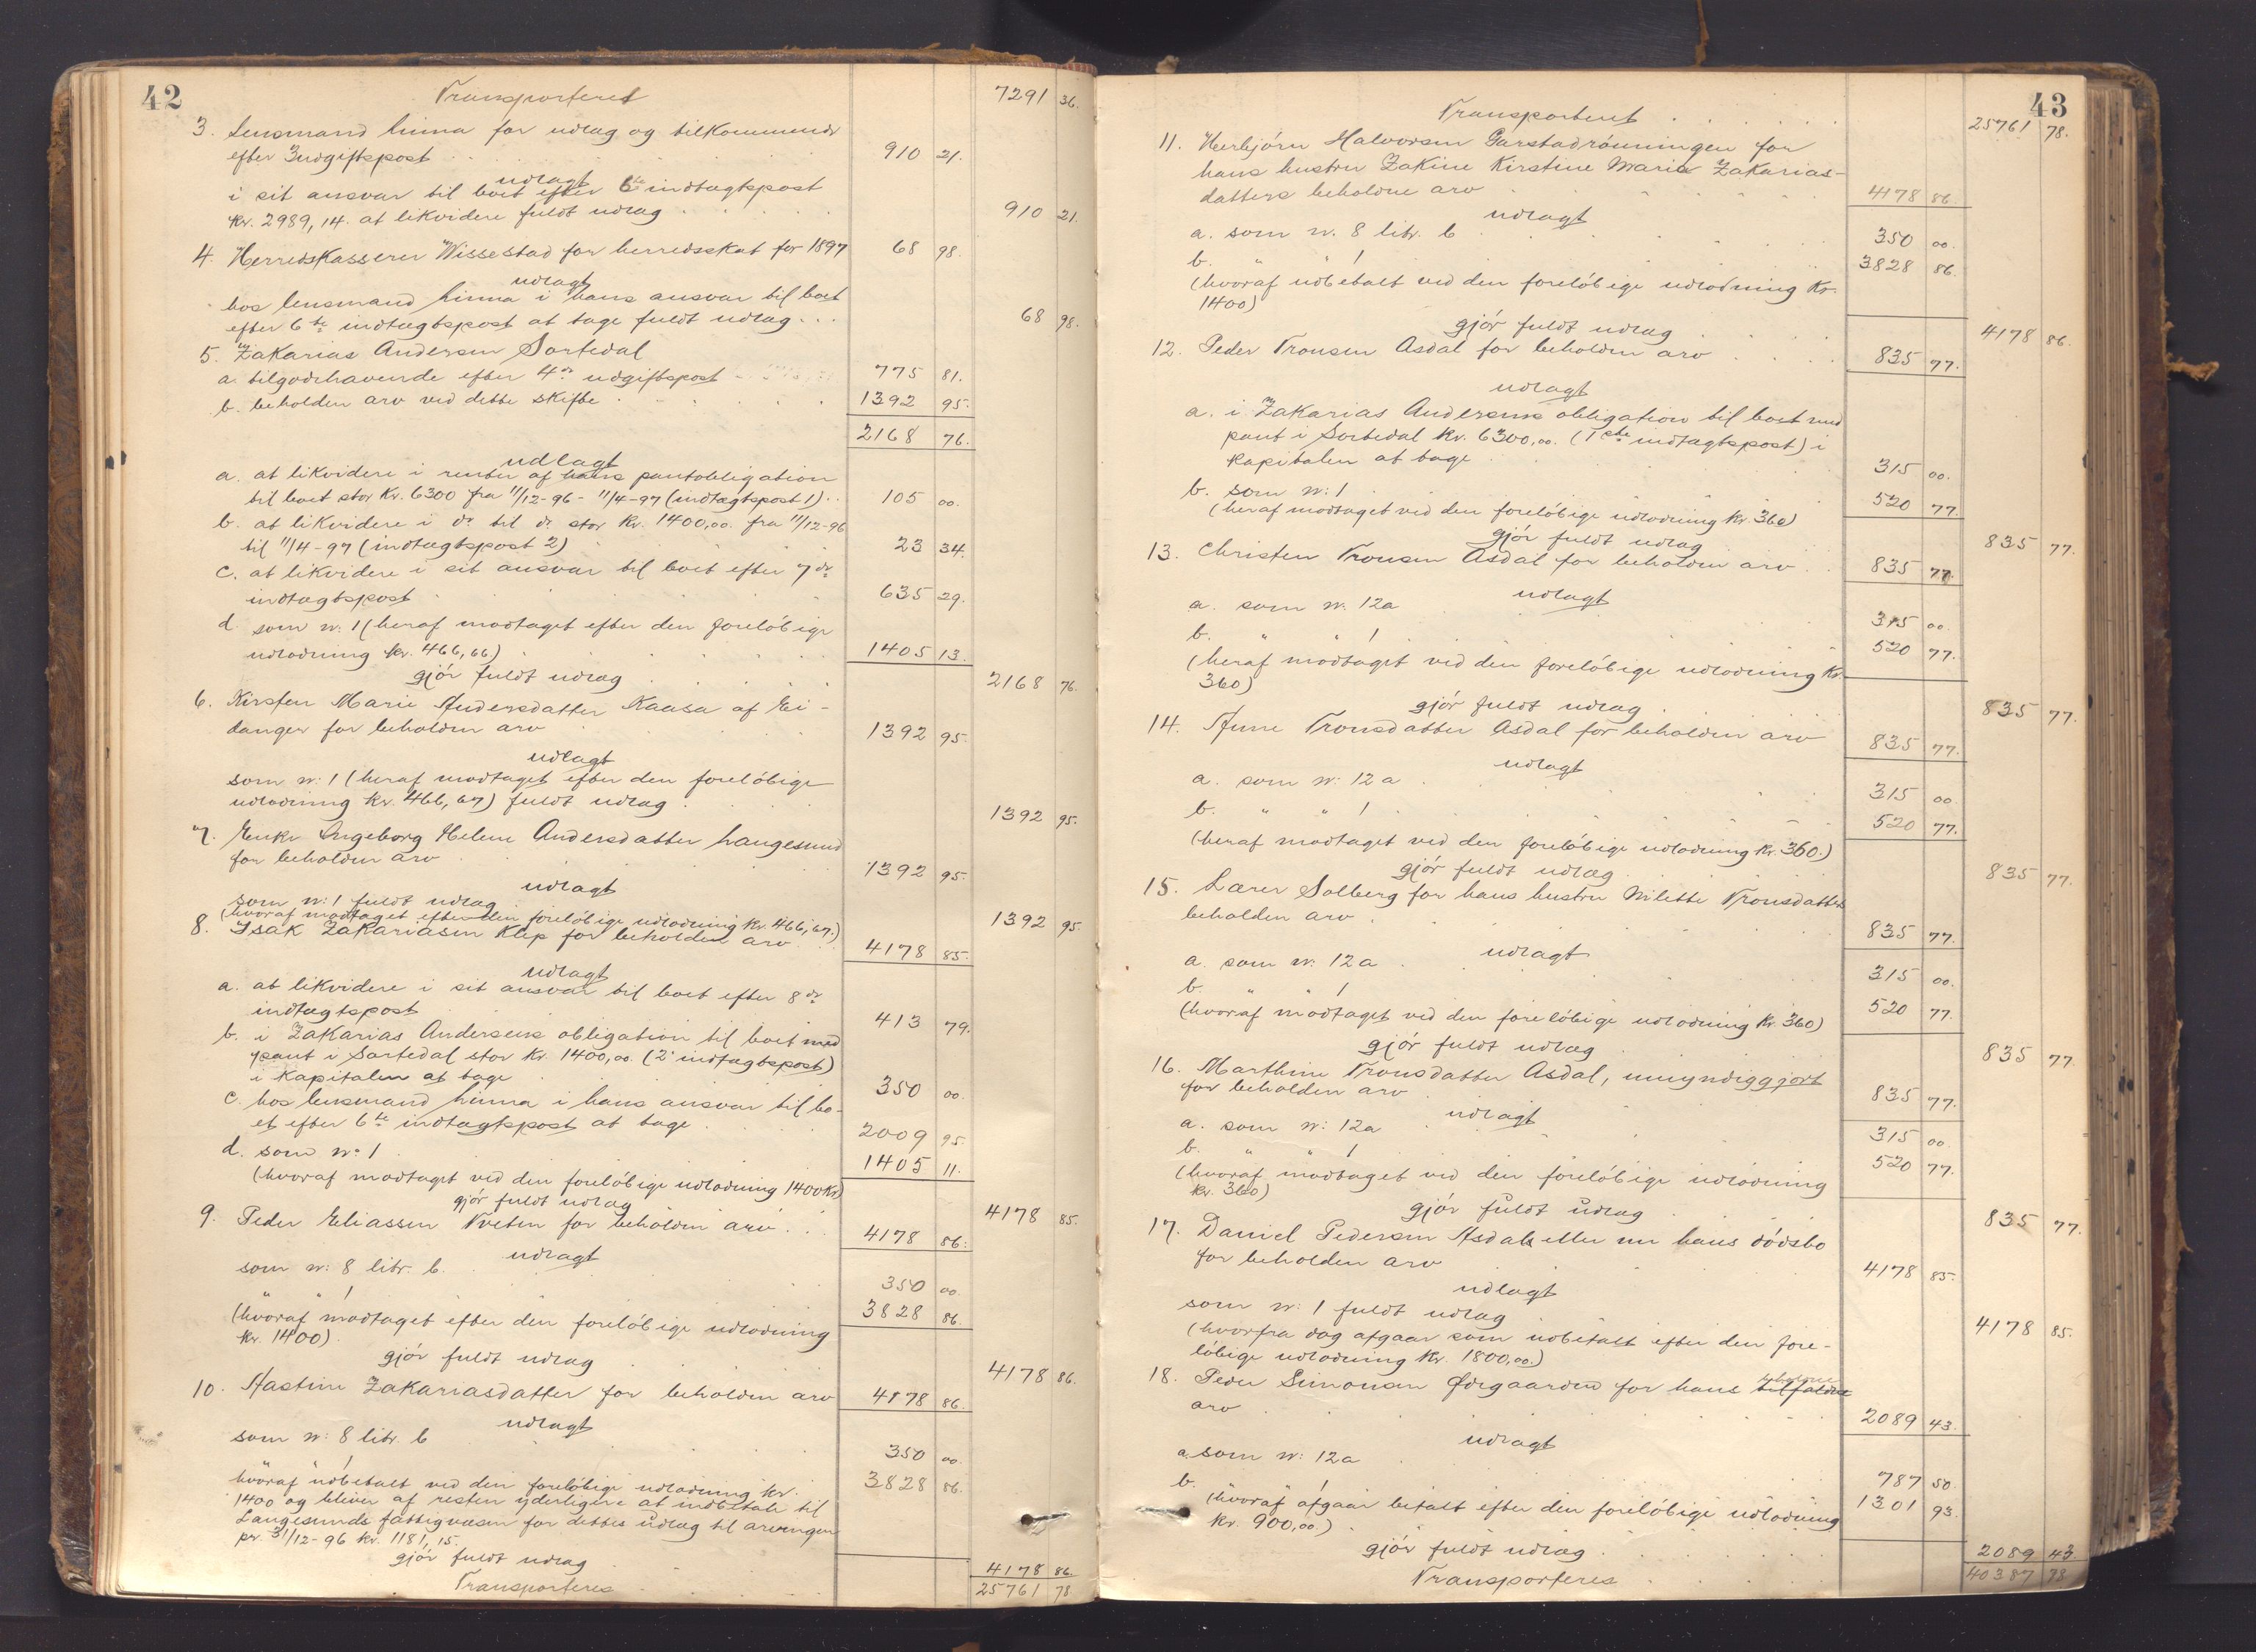 42
Transporteret 7291 36.
3. Lensmand Linna for udlæg og tilkommende
efter 3 udgiftspost 910 21.
udlagt
i sit ansvar til boet efter 6te indtægtspost
Kr. 2989,14. at likvidere fuldt udlæg 910 21.
4. Herredskasserer Wissestad for herredsskat for 1897 68 98.
udlagt
hos lensmand Linna i hans ansvar til boet
efter 6te indtægtspost at tage fuldt udlæg 68 98.
5. Zakarias Andersen Sortedal
a. tilgodehavende efter 4de udgiftspost 775 81.
b. beholden arv ved dette skifte 1392 95.
2168 76.
udlagt
a. at likvidere i renter af hans pantobligation
til boet stor Kr. 6300 fra 11/12-96 - 11/4-97 (indtægtspost 1) 105 00.
b. at likvidere i do til do stor Kr. 1400,00. fra 11/12-96
til 11/4-97 (indtægtspost 2) 23 34.
c. at likvidere i sit ansvar til boet efter 7de
indtægtspost 635 29.
d. som n: 1 (heraf modtaget efter den forelöbige
udlodning kr. 466,66) 1405 13.
gjör fuldt udlæg 2168 76.
6. Kirsten Marie Andersdatter Kaasa af Ei-
danger for beholden arv 1392 95.
udlagt
som n: 1 (heraf modtaget efter den forelöbige
udlodning kr. 466,67) fuldt udlæg 1392 95.
7. Enke Ingeborg Helene Andersdatter Langesund
for beholden arv 1392 95.
udlagt
som n: 1 fuldt udlæg
(hvoraf modtaget efter den forelöbige udlodning kr. 466,67.) 1392 95.
8. Isak Zakariasen Klep for beholden arv 4178 85.
udlagt
a. at likvidere i sit ansvar til boet efter 8de
indtægtspost 413 79.
b. i Zakarias Andersens obligation til boet med
pant i Sortedal stor Kr. 1400,00. (2 indtægtspost)
i Kapitalen at tage 350 00.
c. hos lensmand Linna i hans ansvar til bo-
et efter 6te indtægtspost at tage 2009 95.
d. som no 1 1405 11.
(hvoraf modtaget ved den forelöbige udlodning 1400 Kr)
gjör fuldt udlæg 4178 85.
9. Peder Eliassen Tveten for beholden arv 4178 86.
udlagt
som n: 8 litr. b. 350 00.
" " 1 3828 86.
(hvoraf modtaget efter den forelöbige udlodning
kr. 1400).
gjör fuldt udlæg 4178 86.
10. Hastine Zakariasdatter for beholden arv 4178 86.
udlagt
som n: 8 litr. b 350 00.
" " 1 3828 86.
hvoraf udbetalt ved den forelöbige udlodning kr.
1400 og bliver af resten yderligere at indbetale til
Langesunds fattigvæsen for dettes udlæg til arvingen
pr. 31/12-96 kr. 1181,15.
gjör fuldt udlæg 4178 86.
Transporteres 25761 78.
43
Transporteret 25761 78.
11. Herbjörn Halvorsen Garstadrönningen for
hans hustru Zakine Kirstine Maria Zakarias-
datters beholdne arv 4178 86.
udlagt
a. som n. 8 litr. b 350 00.
b. " " 1 3828 86.
(hvoraf udbetalt ved den forelöbige udlodning Kr.
1400)
gjör fuldt udlæg 4178 86.
12. Peder Tronsen Asdal for beholden arv 835 77.
udlagt
a. i Zakarias Andersens obligation til boet med
pant i Sortedal Kr. 6300,00. (1ste indtægtspost) i
kapitalen at tage 315 00.
b. som n: 1 520 77.
(heraf modtaget ved den forelöbige udlodning Kr. 360)
gjör fuldt udlæg 835 77.
13. Christen Tronsen Asdal for beholden arv 835 77.
udlagt
a. som n. 12a 315 00.
b. " " 1 520 77.
(heraf modtaget ved den forelöbige udlodning Kr.
360)
gjör fuldt udlæg 835 77.
14. Anne Tronsdatter Asdal for beholden arv 835 77.
udlagt
a. som n: 12 a 315 00.
b. " " 1 520 77.
(heraf modtaget ved den forelöbige udlodning Kr. 360.)
gjör fuldt udlæg 835 77.
15. Lærer Solberg for hans hustru Milette Tronsdatters
beholden arv 835 77.
udlagt
a. som n: 12a 315 00.
b. " " 1 520 77.
(hvoraf modtaget ved den forelöbige udlodning Kr. 360)
gjör fuldt udlæg 835 77.
16. Marthine Tronsdatter Asdal, umyndiggjort
for beholden arv 835 77.
udlagt
a. som n: 12a 315 00
b. " " 1 520 77.
(hvoraf modtaget ved den forelöbige udlodning
kr. 360)
gjör fuldt udlæg 835 77.
17. Daniel Pedersen Asdal eller nu hans dödsbo
for beholden arv 4178 85.
udlagt
som n: 1 fuldt udlæg 4178 85.
(hvorfra dog afgaar som udbetalt efter den fore-
löbige udlodning Kr. 1800,00.)
18. Peder Simonsen Ørgaarden for hans tilfaldne beholdne
arv 2089 43.
udlagt
a. som n: 12a 787 50.
b. " " 1 1301 93.
(hvoraf afgaar betalt efter den forelöbige udlodning
Kr. 900,00.)
gjör fuldt udlæg 2089 43.
Transporteres 40387 78